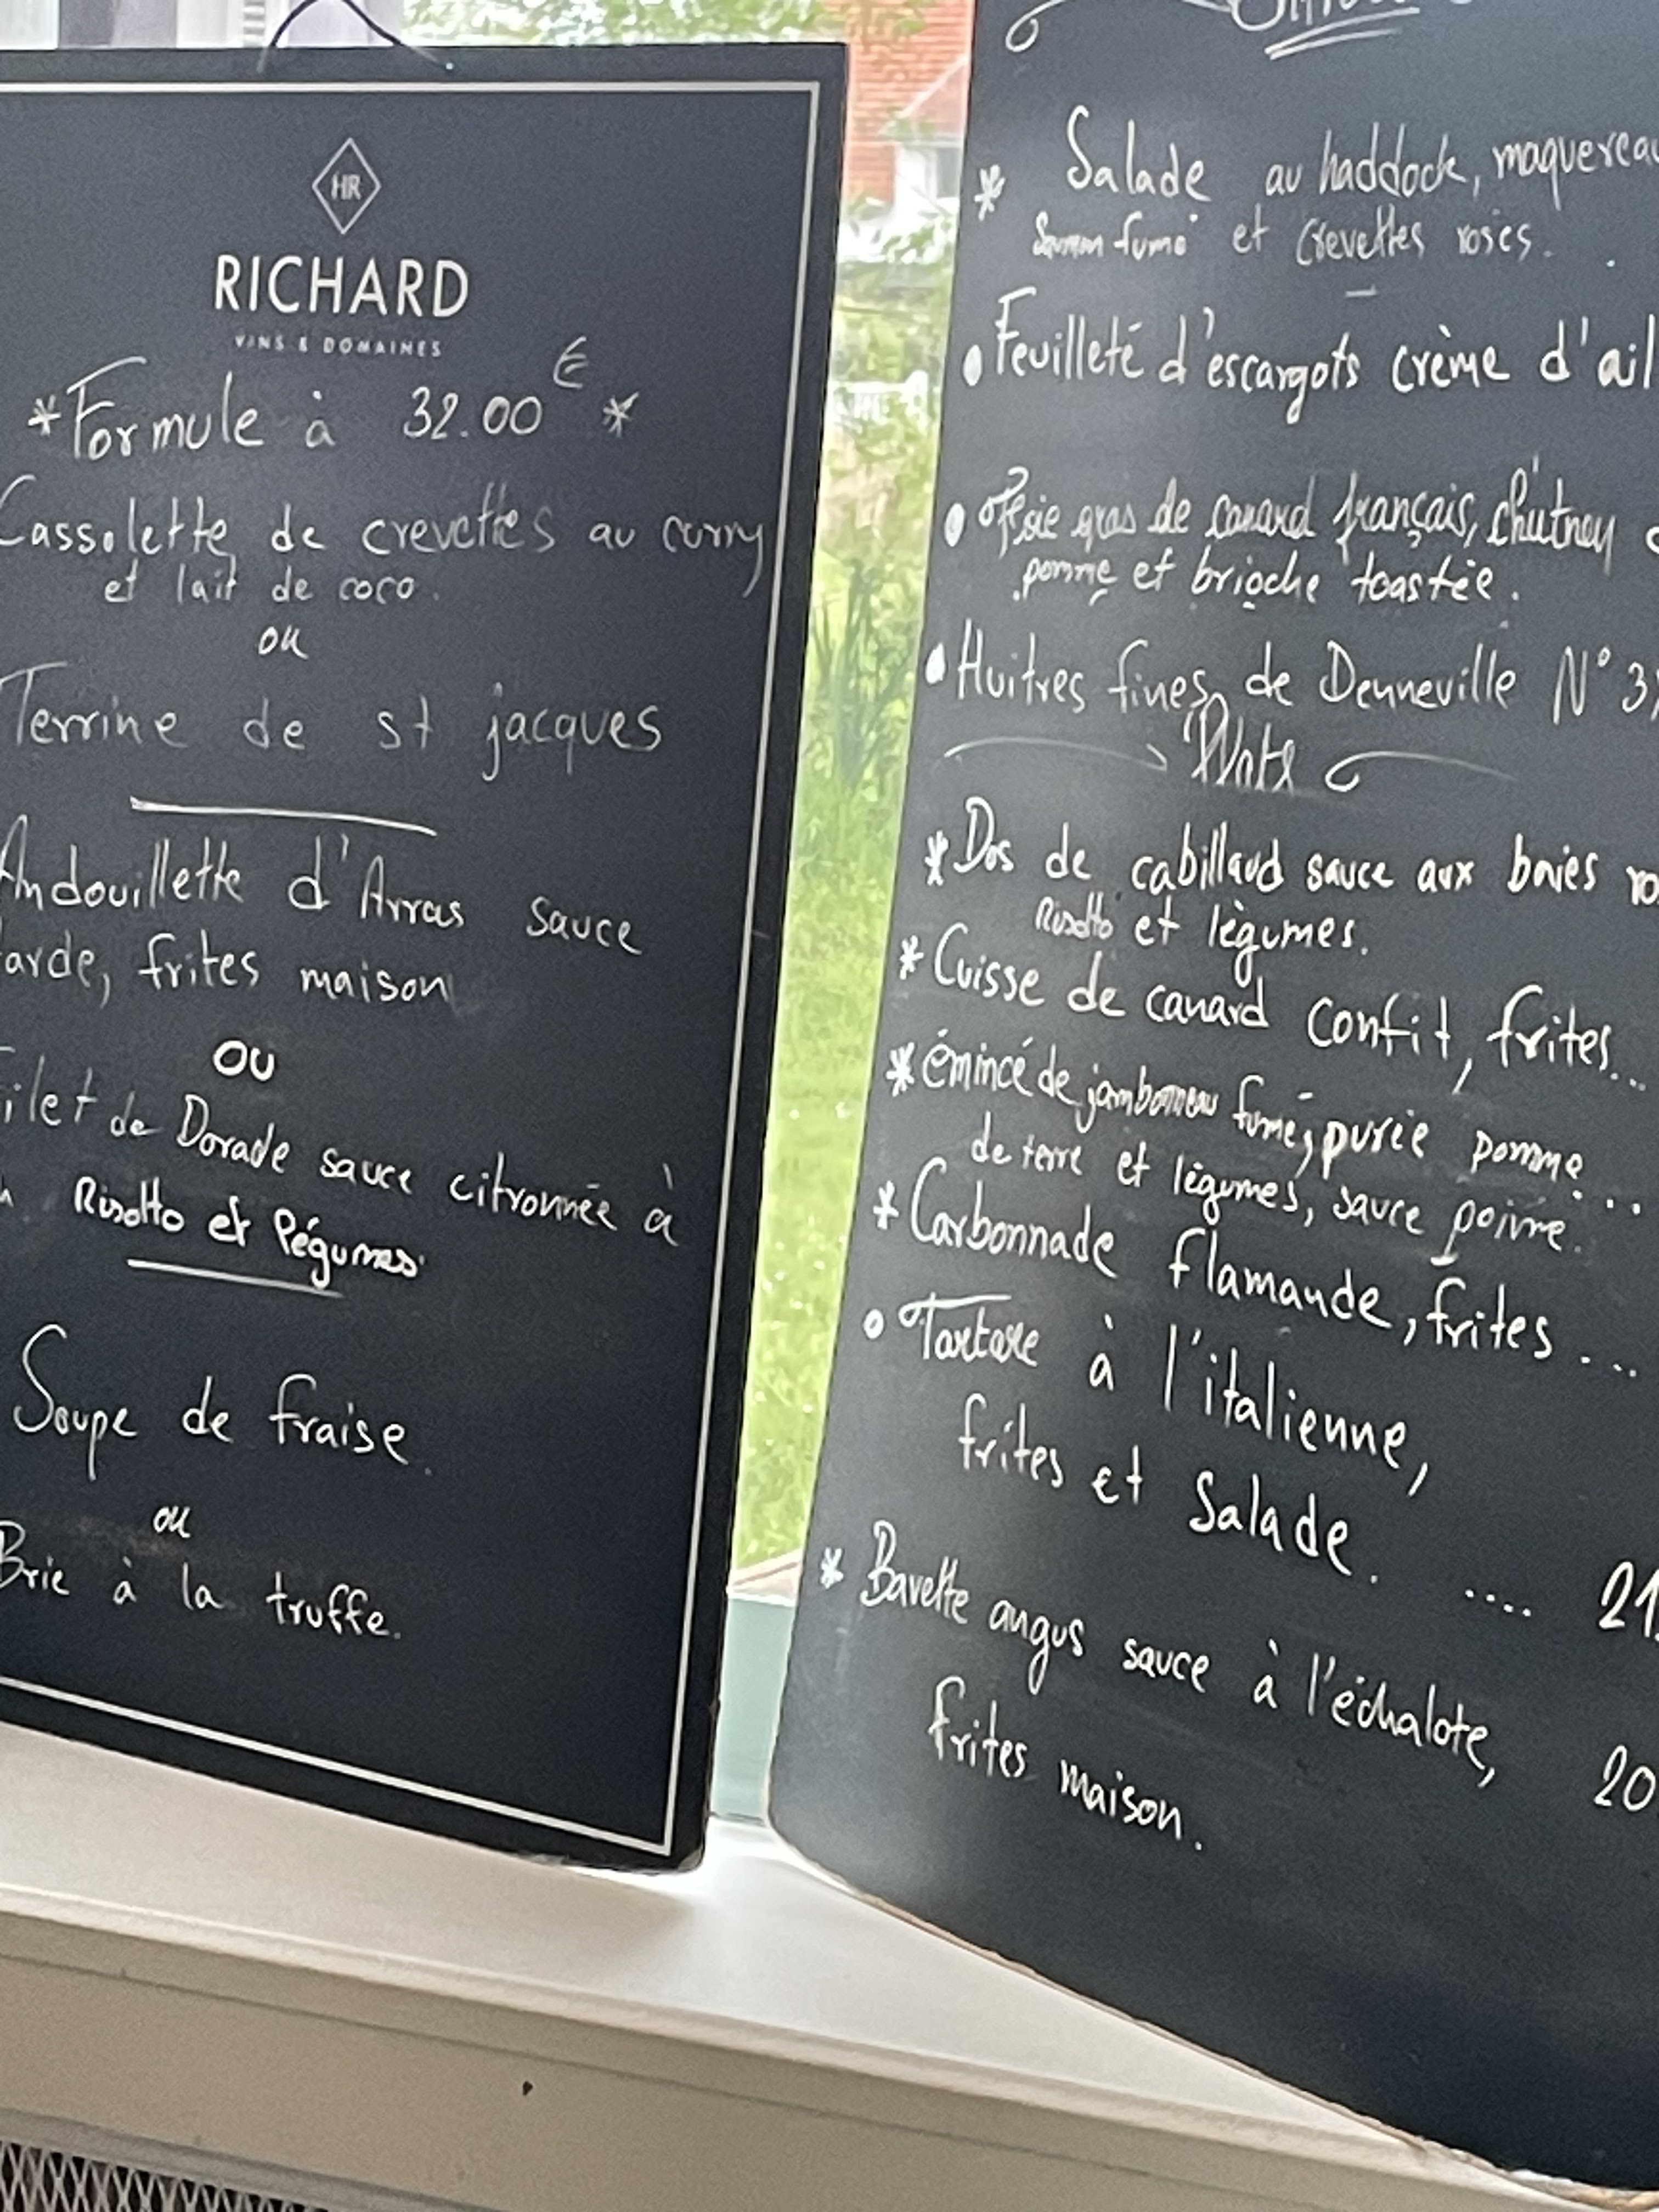 HR
RICHARD
VINS & DOMAINES
*Formule à 32.00€*
Cassolette de crevettes au curry
et lait de coco.
ou
Terrine de st jacques
Andouillette d'Arras sauce
arde, frites maison
OU
ilet de Dorade sauce citronnée à
Risotto et légumes
Soupe de fraise.
ou
Brie à la truffe.
* Salade au haddock, maquereau
Saumon fumé et crevettes roses.
• Feuilleté d'escargots crème d'ail
• Foie gras de canard français, chutney
pomme et brioche toastée.
• Huitres fines de Denneville N°3
Plats
* Dos de cabillaud sauce aux baies ro
Risotto et légumes.
* Cuisse de canard confit, frites...
* émincé de jambonneau fumé, purée pomme...
de terre et légumes, sauce poivre.
* Carbonnade flamande, frites...
• Tartare à l'italienne,
frites et Salade. .... 21
* Bavette angus sauce à l'échalote,
frites maison. 20